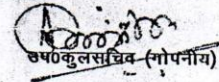 उप०कुलसचिव (गोपनीय)